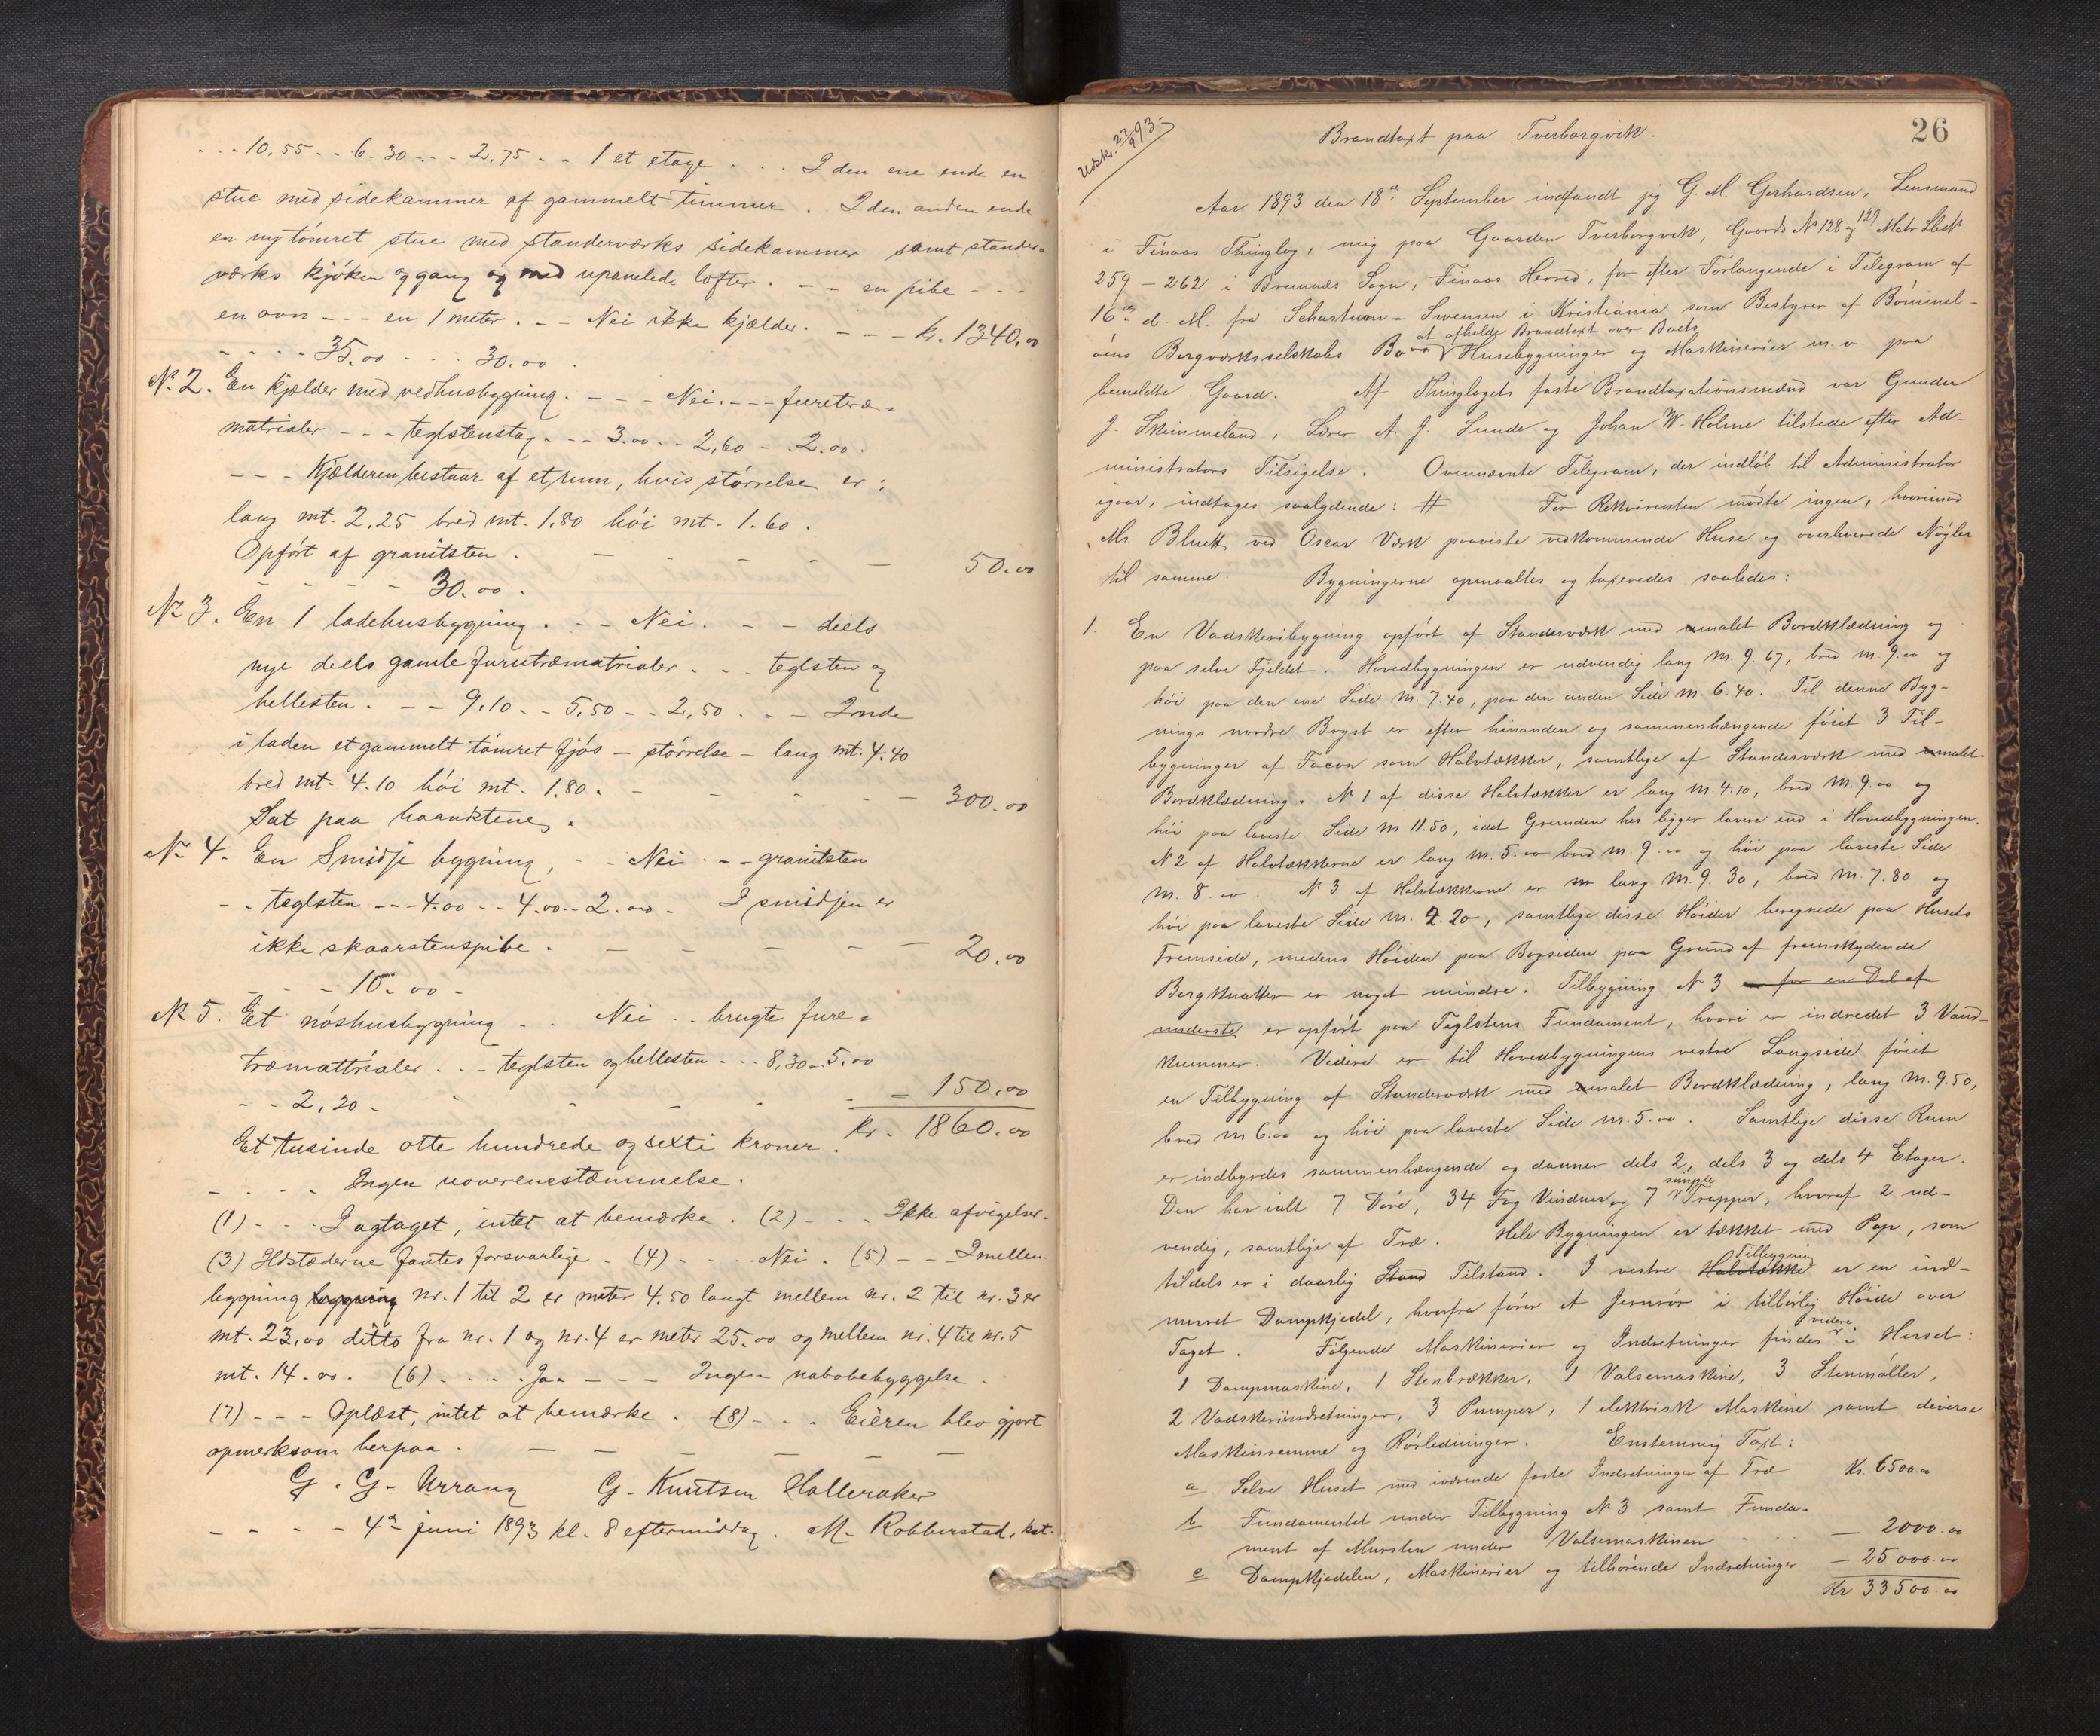 - - - 10,55 - - 6.30 - - - 2,75 - - 1 et etage - - - I den ene ende en
stue med sidekammer af gammelt tømmer. I den anden ende
en ny tømret stue med standerværks sidekammer samt stander=
værks kjøken og gang og med upanelede lofter. - - en pibe - - -
en ovn - - - en 1 meter. - - Nei ikke kjælder. - - - kr. 1340,00
- - - - 35.00 - - - 30.00.
No 2. En kjælder med vedhusbygning. - - - Nei. - - - furetræ=
matrialer - - - teglstenstag. - - 3.00 - - 2,60 - - 2.00.
- - - Kjælderen bestaar af et rum, hvis størrelse er:
lang mt. 2,25 bred mt. 1.80 høi mt. 1.60.
Opført af granitsten. - - - - - 50.00
- - - - 30.00.
No 3. En 1 ladehusbygning. - - Nei. - - deels
nye deels gamle furutræmatrialer. - - teglsten og
hellesten. - - 9.10 - - 5,50 - - 2,50. - - Inde
i laden et gammelt tømret fjøs - størrelse - lang mt. 4.40
bred mt. 4.10 høi mt. 1.80. - - - - - 300.00
Sat paa haandstene.
No 4. En Smidje bygning, - - Nei. - - granitsten
- - teglsten - - - 4.00 - - 4.00 - - 2.00. I smidjen er
ikke skaarstenspibe. - - - - - 20.00
- - - 10.00 -
No 5. Et nøshusbygning - - Nei - - brugte fure=
træmattrialer. - - teglsten og hellesten - - - 8,30 - - 5.00
- - 2,20 - - - - - 150.00
kr. 1860.00
Et tusinde otte hundrede og sexti kroner.
- - - - Ingen uoverensstæmmelse.
(1) - - - Iagtaget, intet at bemærke. (2) - - - Ikke afvigelser.
(3) Ildstæderne fantes forsvarlige. (4) - - - Nei. (5) - - Imellem
bygning bygning nr. 1 til 2 er meter 4.50 langt mellem nr. 2 til nr. 3 er
mt. 23,00 ditto fra nr. 1 og nr. 4 er meter 25.00 og mellem nr. 4 til nr. 5
mt. 14.00. (6) - - - - Ja. - - - Ingen nabobebyggelse.
(7) - - - Oplæst, intet at bemærke. (8) - - - Eieren blev gjort
opmerksom herpaa.
G. G. Urrang G. Knutsen Halleraker
- - - - 4de juni 1893 kl. 8 eftermiddag. M. Robberstad, kst.
26
Udskr. 22/9 93.
Brandtaxt paa Tverborgvik.
Aar 1893 den 18de September indfandt jeg G. M. Gerhardsen, Lensmand
i Finaas Thinglag, mig paa Gaarden Tverborgvik, Gaards No 128 og 129 Matr. Lb.No
259 - 262 i Bremnæs Sogn, Finaas Herred, for efter Forlangende i Telegram af
16de d. M. fra Schartum-Swensen i Kristiania som Bestyrer af Bømmel-
øens Bergværksselskabs Bo
at afholde Brandtaxt over Boets
Husebygninger og Maskinerier m. v. paa
bemeldte Gaard. Af Thinglagets faste Brandtaxationsmænd var Gunder
J. Skimmeland, Lærer A. J. Sunde og Johan W. Holme tilstede efter Ad-
ministrators Tilsigelse. Ovennævnte Telegram, der indløb til Administrator
igaar, indtages saalydende: # For Rekvirenten mødte ingen, hvorimod
Mr. Bluett ved Oscar Værk paaviste vedkommende Huse og overleverede Nøgler
til samme. Bygningerne opmaaltes og taxeredes saaledes:
1. En Vadskeribygning opført af Standerværk med umalet Bordklædning og
paa selve Fjeldet. Hovedbygningen er udvendig lang m. 9.67, bred m. 9.00 og
høi paa den ene Side m. 7.40, paa den anden Side m. 6.40. Til denne Byg-
nings nordre Bryst er efter hinanden og sammenhængende føiet 3 Til-
bygninger af Facon som Halvtækker, samtlige af Standerværk med umalet
Bordklædning. No 1 af disse Halvtækker er lang m. 4.10, bred m. 9.00 og
høi paa laveste Side m 11.50, idet Grunden her ligger lavere end i Hovedbygningen.
No 2 af Halvtækkerne er lang m. 5.00 bred m. 9.00 og høi paa laveste Side
m. 8.00. No 3 af Halvtækkerne er m lang m. 9.30, bred m. 7.80 og
høi paa laveste Side m. 2.20, samtlige disse Høider beregnede paa Husets
Fremside, medens Høiden paa Bagsiden paa Grund af fremskydende
Bergknatter er noget mindre. Tilbygning No 3 er for en Del af
underste er opført paa Teglstens Fundament, hvori er indredet 3 Vand-
kummer. Videre er til Hovedbygningens vestre Langside føiet
en Tilbygning af Standerværk med umalet Bordklædning, lang m. 9.50,
bred m 6.00 og høi paa laveste Side m. 5.00. Samtlige disse Rum
er indbyrdes sammenhængende og danner dels 2, dels 3 og dels 4 Etager.
Den har ialt 7 Døre, 34 Fag Vinduer og 7 simple Trapper, hvoraf 2 ud-
vendig, samtlige af Træ. Hele Bygningen er tækket med Pap, som
tildels er i daarlig Stand Tilstand. I vestre Halvtække Tilbygning er en ind-
muret Dampkjedel, hvorfra fører et Jernrør i tilbørlig Høide over
Taget. Følgende Maskinerier og Indretninger findes videre i Huset:
1 Dampmaskine, 1 Stenbrækker, 1 Valsemaskine, 3 Stenmøller,
2 Vadskeriindretninger, 3 Pumper, 1 elektrisk Maskine samt diverse
Maskinremme og Rørledninger. Enstemmig Taxt:
a Selve Huset med iværende faste Indretninger af Træ Kr. 6500.00
b Fundamentet under Tilbygning No 3 samt Funda-
ment af Mursten under Valsemaskinen - - - — 2000.00
c Dampkjedelen, Maskinerier og tilhørende Indretninger — 25000.00
Kr 33500.00